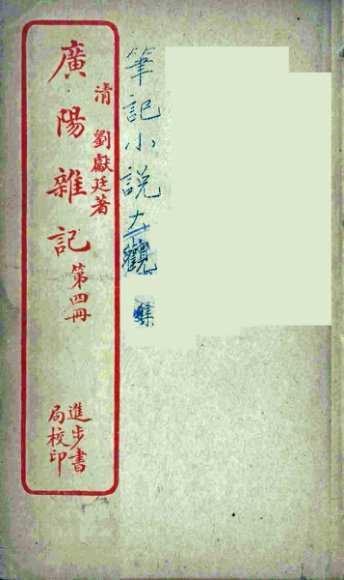 筆記小說大觀
清 劉獻廷著
廣陽雜記 第四冊
進步書
局校印